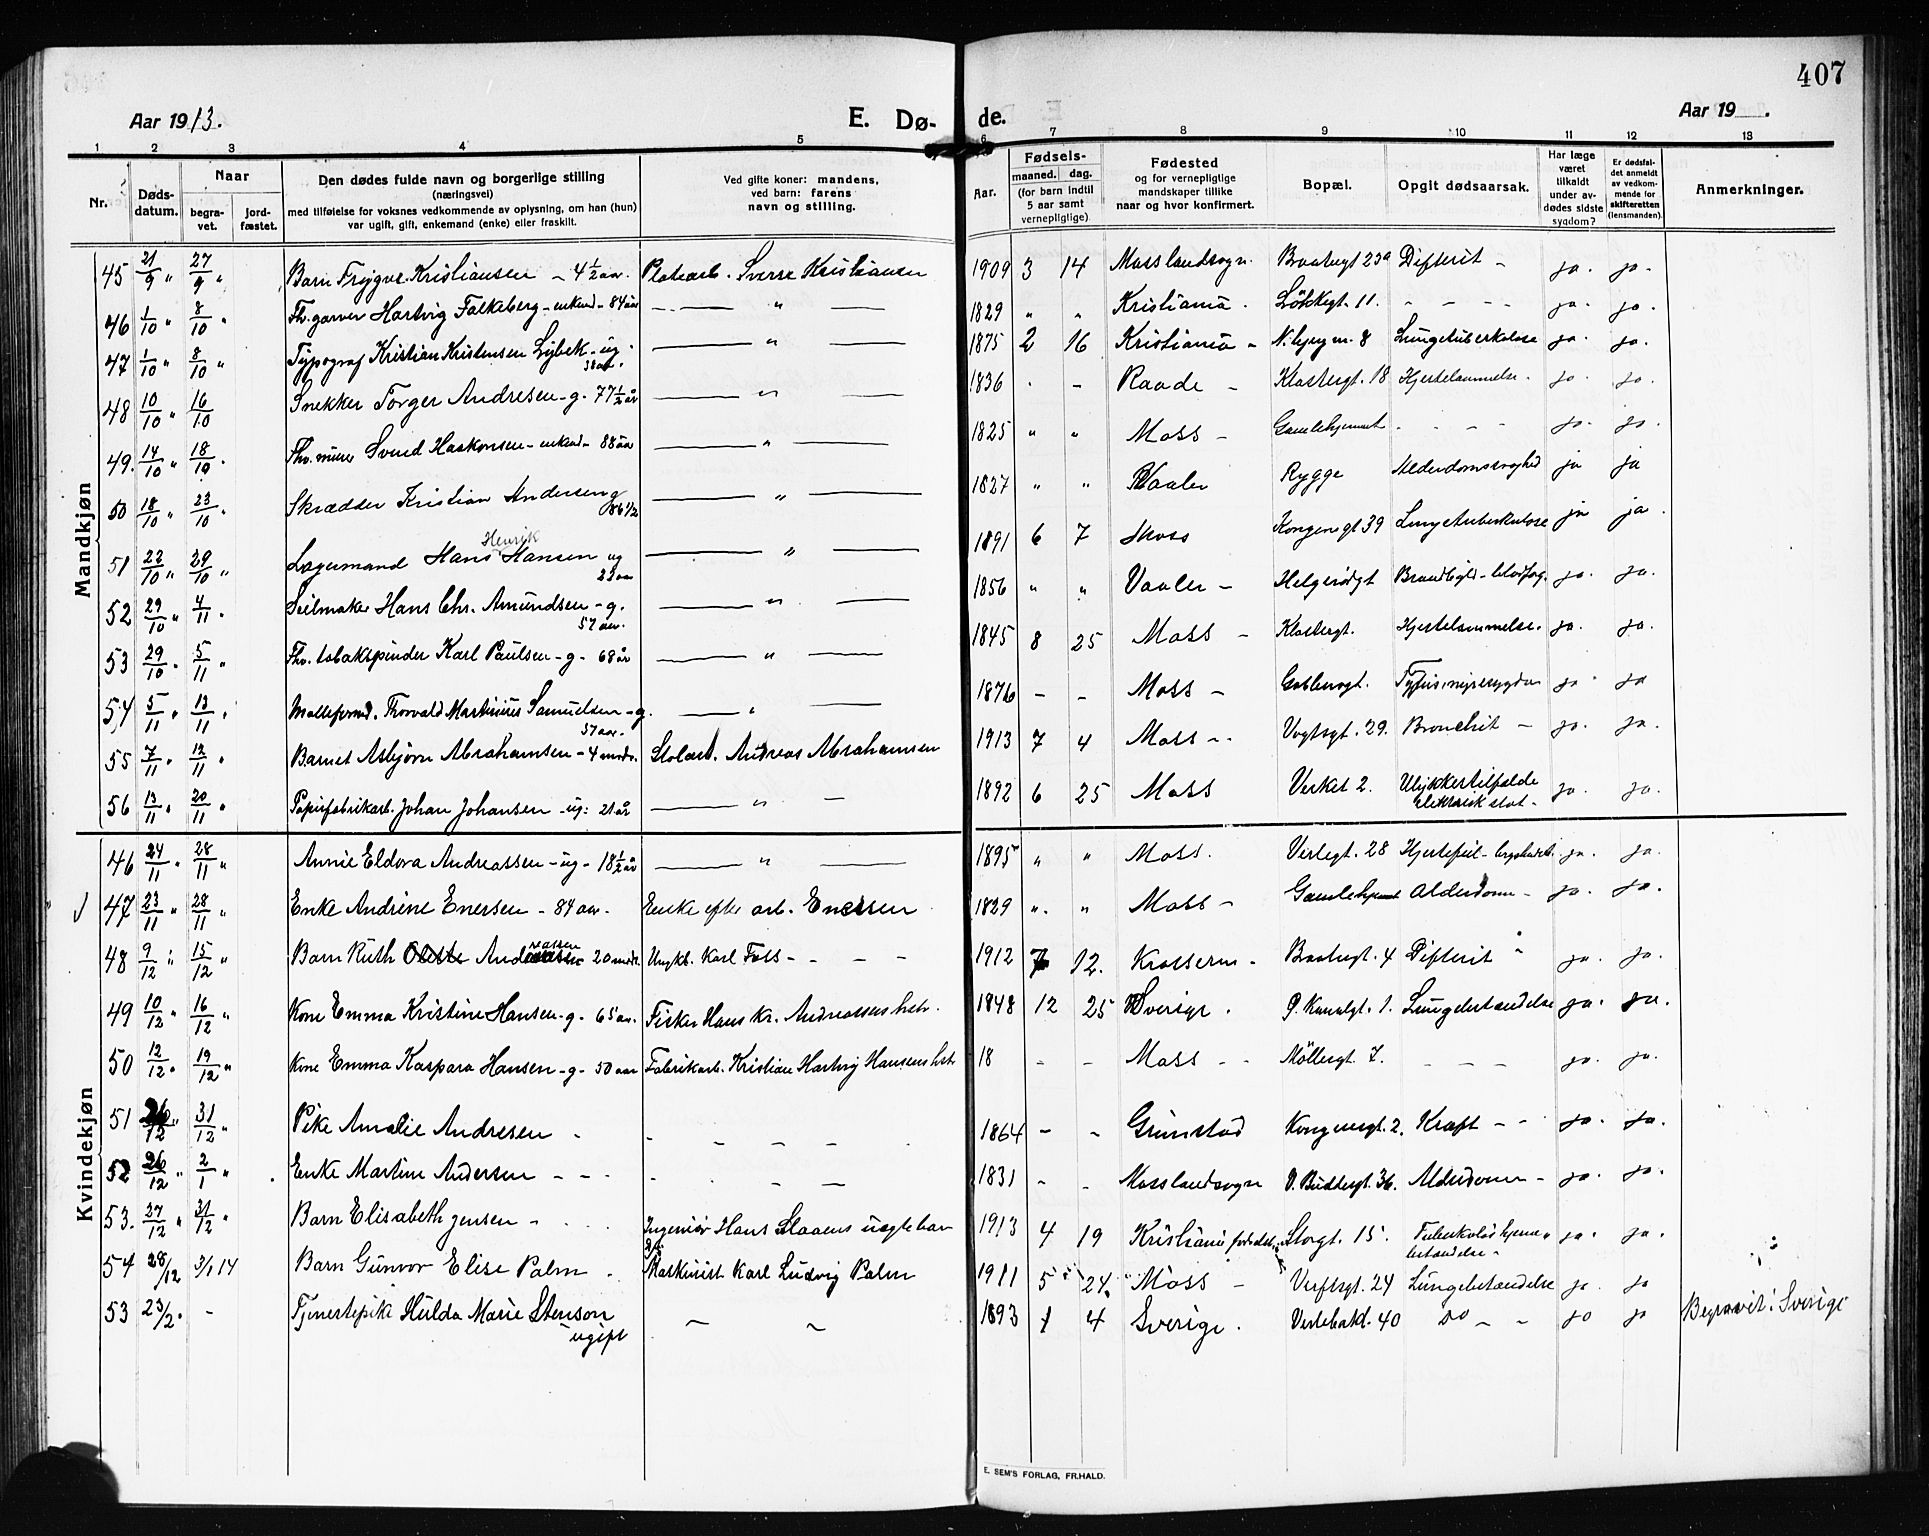 407
Aar 1913. E. Dø- de. Aar 19 .
1 2 3 4 5 6 7 8 9 10 11 12 13
Nr. Døds-datum. Naar begra-vet. jord-fæstet. Den dødes fulde navn og borgerlige stilling (næringsvei) med tilføielse for voksnes vedkommende av oplysning, om han (hun) var ugift, gift, enkemand (enke) eller fraskilt. Ved gifte koner: mandens, ved barn: farens navn og stilling. Aar. Fødsels- maaned. dag. (for barn indtil 5 aar samt vernepligtige). Fødested og for vernepligtige mandskaper tillike naar og hvor konfirmert. Bopæl. Opgit dødsaarsak. Har læge været tilkaldt under av-dødes sidste sygdom? Er dødsfal-det anmeldt av vedkom-mende for skifteretten (lensmanden). Anmerkninger.
Mandkjøn
45 21/9 " 27/9 " Barn Trygve Kristiansen - 4 1/2 aar. Platearb. Sverre Kristiansen 1909 3 14 Moss landsogn. Baatsgt 23a Difterit - ja. ja.
46 1/10 " 8/10 " Fhv. garver Hartvig Falkeberg - enkem - 84 aar " 1829 " " Kristiania. Løkkegt. 11. - - - - ja. ja.
47 1/10 " 8/10 " Typograf Kristian Kristensen Lybek - ug. 38 aar. " 1875 2 16 Kristiania - N. bjergn. 8 Lungetuberkulose ja. ja.
48 10/10 " 16/10 Snekker Torger Andresen - g. 77 1/2 år " 1836 - - Raade - Klostergt. 18 Hjertelammelse. ja. ja.
49. 14/10 " 18/10 . Fhv. murer Svend Haakonsen - enkem - 88 aar " 1825 " " Moss - Gamlehjemmet - - - - ja. ja.
50 18/10 " 23/10 . Skrædder Kristian Andersen g 86 1/2 " 1827 " " Vaaler Rygge Alderdomssvaghed ja ja
51 22/10 " 29/10 " Lagermand Hans Henrik Hansen ug 22 aar " 1891 6 7 Moss Kongensgt 39 Lungetuberkulose ja ja.
52 29/10 " 4/11 . Seilmaker Hans Chr. Amundsen - g. 57 aar. " 1856 " " Vaaler - Helgerødgt ja. ja.
53 29/10 . 5/11 " Fhv. tobakspinder Karl Paulsen - g - 68 år " 1845 8 25 Moss - Klostergt. Hjertelammelse. ja. ja.
54 5/11 " 13/11 . Thorvald Martinius Samuelsen - g. 57 aar. " 1876 - - Moss - ja. ja
55 7/11 " 12/11 . Barnet Asbjørn Abrahamsen - 4 mndr. Andreas Abrahamsen 1913 7 4 Moss - - Vogtsgt. 29. Bronchit - ja. ja.
56 13/11 " 20/11 " Papirfabrikarb. Johan Johansen - ug: 21 år " 1892 6 25 Moss Verket 2. Ulykkestilfælde elektrisk støt - ja. ja.
Kvindekjøn
46 24/11 " 28/11 " Annie Eldora Andreassen - ug - 18 1/2 år " 1895 " " Moss. Verlegt. 28 Hjertefeil - ja. ja.
47 23/11 " 28/11 " Enke Andrine Enersen - 84 aar. Enke efter arb. Enersen 1829 " " Moss - Gamlehjemmet Alderdom - ja. ja.
48 9/12 " 15/12 " Barn Ruth Andreassen 20 mndr. Ungk. Karl Foss - - - - 1912 7 12. Krosseren - Baatsgt. 4 Difterit " ja. ja.
49 10/12 " 16/12 " Kone Emma Kristine Hansen - g - 65 aar. Fisker Hans Kr. Andreassens hstr. 1848 12 25 Sverige . Ø. Kanalgt. 1. Lungebetændelse ja. ja.
50 12/12 " 19/12 " Kone Emma Kaspara Hansen - g - 50 aar Fabrikarb. Kristian Hartvig Hansens hstr 18 - - Moss - - Møllergt. 7. - - - ja. ja.
51 26/12 " 31/12 " Pike Amalie Andresen - - - - - 1864 - - Grimstad Kongensgt. 2. Kræft - - ja. ja.
52 26/12 " 2/1 " Enke Martine Andersen - - - - - - 1831 - - Moss landsogn V. Budtsgt. 36. Alderdom - ja. ja.
53. 27/12 " 31/12 " Barn Elisabeth Jensen - Ingeniør Hans Slaaens uegte barn 1913 4 19 Kristiania Storgt. 15. Tuberkuløs hjerne betændelse - ja. ja.
54 28/12 3/1 14 Barn Gunvor Elise Palm . Maskinist Karl Ludvig Palm 1911 5 24. Moss - Verftsgt. 24 Lungebetændelse ja. ja
53 23/2. - Tjenestepike Hulda Marie Stenson ugift - - 1893 1 4 Sverige . Verlebakk. 40 Do - - ja ja Begravet i Sverige
E. SEM'S FORLAG, FR.HALD.